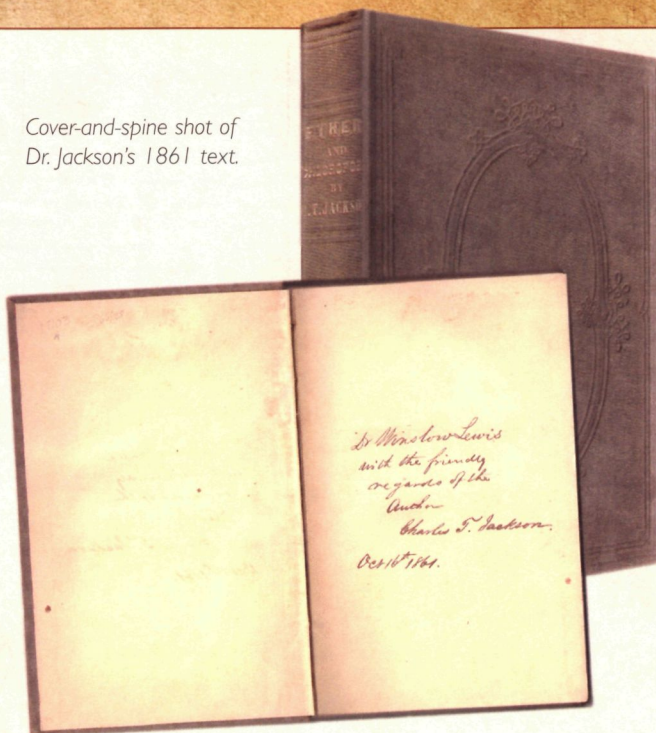 Cover-and-spine shot of
Dr. Jackson's 1861 text.
ETHER
AND
BY
C.T. JACKSON
Dr Winslow Lewis
with the friendly
regards of the
Author
Charles T. Jackson.
Oct 16th 1861.